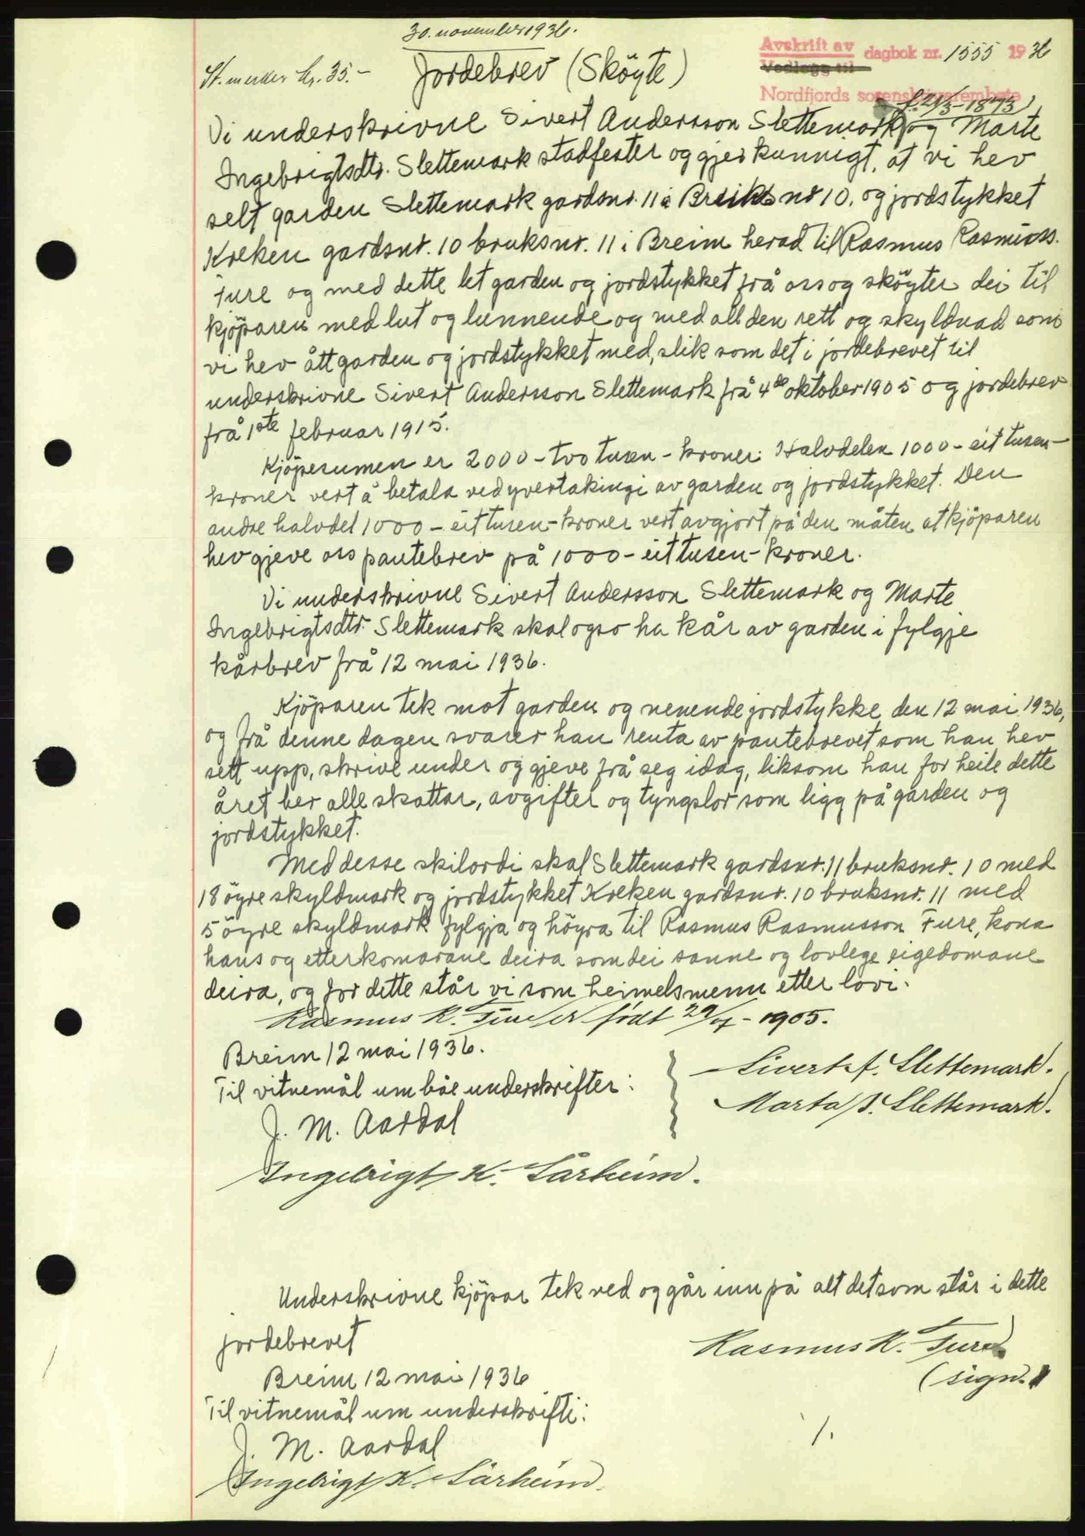 30. november 1936.
Avskrift av dagbok nr. 1555 1936
Vedlegg til
Nordfjords sorenskrivarembete
St.merker kr. 35.-
Jordebrev (Sköyte)
f. 21/3-1873)
Vi underskrivne Sivert Andersson Slettemark og Marte
Ingebrigtsdtr. Slettemark stadfester og gjer kunnigt, at vi hev
selt garden Slettemark gardsnr. 11 a Bruks nr 10. og jordstykket
Kreken gardsnr. 10 bruksnr. 11 i Breim herad til Rasmus Rasmuss.
Fure og med dette let garden og jordstykket frå oss og sköyter dei til
kjöparen med lut og lunnende og med all den rett og skyldnad som
vi hev ått garden og jordstykket med, slik som det i jordebrevet til
underskrivne Sivert Andersson Slettemark frå 4de oktober 1905 og jordebrev
frå 1ste februar 1915.
Kjöpesumen er 2000 - tvo tusen - kroner. Halvdelen 1000 - eit tusen -
kroner vert å betala ved yvertakingi av garden og jordstykket. Den
andre halvdel 1000 - eit tusen - kroner vert avgjort på den måten at kjöparen
hev gjeve oss pantebrev på 1000 - eit tusen - kroner.
Vi underskrivne Sivert Andersson Slettemark og Marte
Ingebrigtsdtr Slettemark skal ogso ha kår av garden i fylgje
kårbrev frå 12 mai 1936.
Kjöparen tek mot garden og nemende jordstykke den 12 mai 1936,
og frå denne dagen svarer han renta av pantebrevet som han hev
sett upp, skrive under og gjeve frå seg idag, liksom han for heile dette
året ber alle skattar, avgifter og tyngslor som ligg på garden og
jordstykket.
Med desse skilordi skal Slettemark gardsnr. 11 bruksnr. 10 med
18 öyre skyldmark og jordstykket Kreken gardsnr. 10 bruksnr. 11 med
5 öyre skyldmark fylgja og höyra til Rasmus Rasmusson Fure, kona
hans og etterkomarane deira som dei sanne og lovlege eigedomane
deira, og for dette står vi som heimelsmenn etter lovi.
Rasmus R. Fure er födt 29/4 - 1905.
Breim 12 mai 1936.
Til vitnemål um båe underskrifter:
Sivert A. Slettemark.
Marta I. Slettemark.
J. M. Aardal
Ingebrigt K. Sårheim.
Underskrivne kjöpar tek ved og går inn på alt det som står i dette
jordebrevet
Rasmus R. Fure
(sign.)
Breim 12 mai 1936
Til vitnemål um underskrifti:
J. M. Aardal
Ingebrigt K. Sårheim.